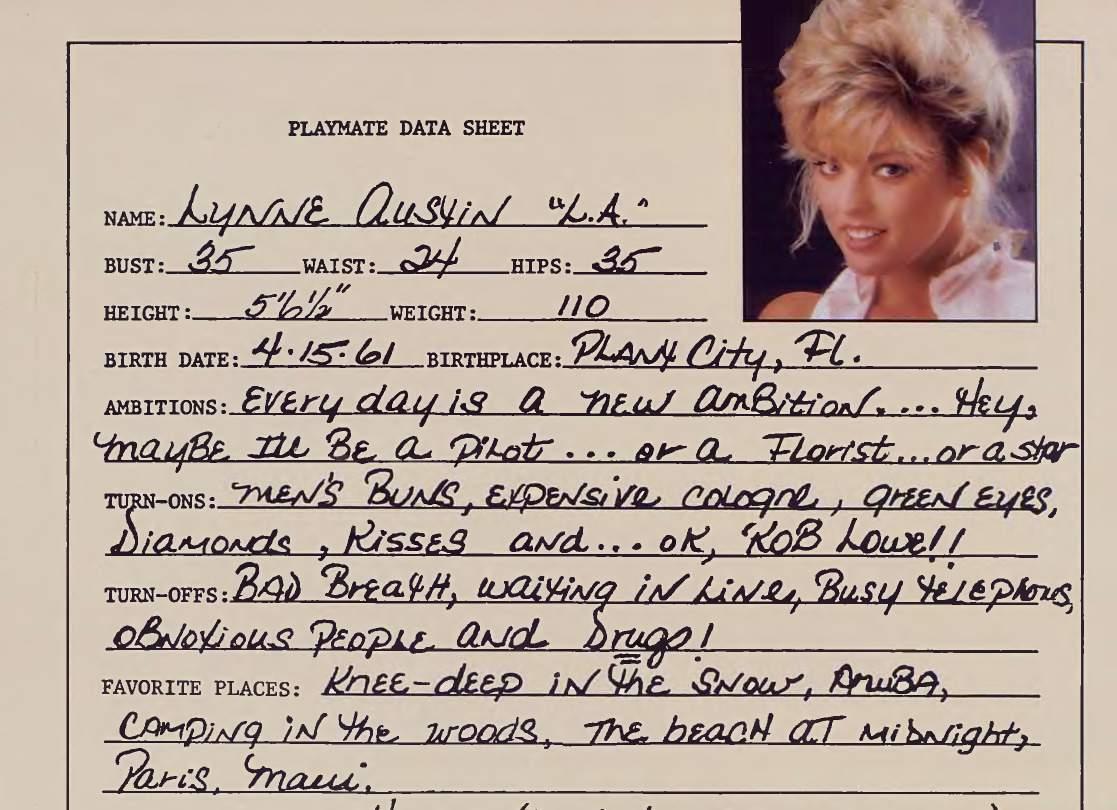 PLAYMATE DATA SHEET
NAME: Lynne Austin "L.A."
BUST: 35 WAIST: 24 HIPS: 35
HEIGHT: 5'6½" WEIGHT: 110
BIRTH DATE: 4·15·61 BIRTHPLACE: Plant City, Fl.
AMBITIONS: Every day is a new ambition.... Hey,
maybe I'll be a pilot ... or a Florist... or a star
TURN-ONS: Men's Buns, expensive cologne, green eyes,
Diamonds, Kisses and... ok, Rob Lowe!!
TURN-OFFS: Bad Breath, waiting in line, Busy telephones,
obnoxious people and Drugs!
FAVORITE PLACES: Knee-deep in the snow, Aruba,
camping in the woods, the beach at midnight,
Paris, Maui.